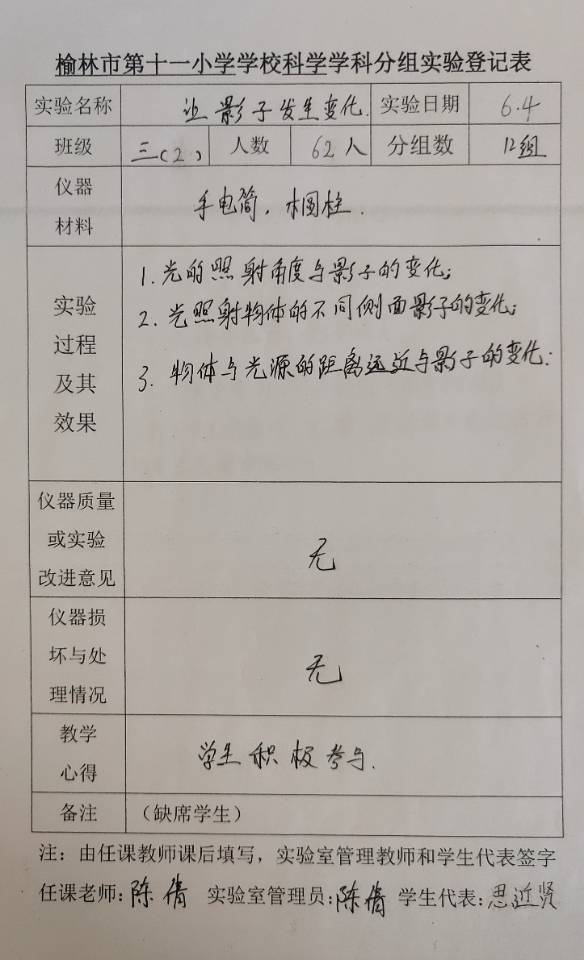 榆林市第十一小学学校科学学科分组实验登记表
实验名称 让影子发生变化. 实验日期 6.4
班级 三(2) 人数 62人 分组数 12组
仪器
材料
手电筒, 木圆柱.
实验
过程
及其
效果
1. 光的照射角度与影子的变化;
2. 光照射物体的不同侧面影子的变化;
3. 物体与光源的距离远近与影子的变化:
仪器质量
或实验
改进意见
无
仪器损
坏与处
理情况
无
教学
心得
学生积极参与.
备注 (缺席学生)
注:由任课教师课后填写,实验室管理教师和学生代表签字
任课老师:陈倩 实验室管理员:陈倩 学生代表:思近贤